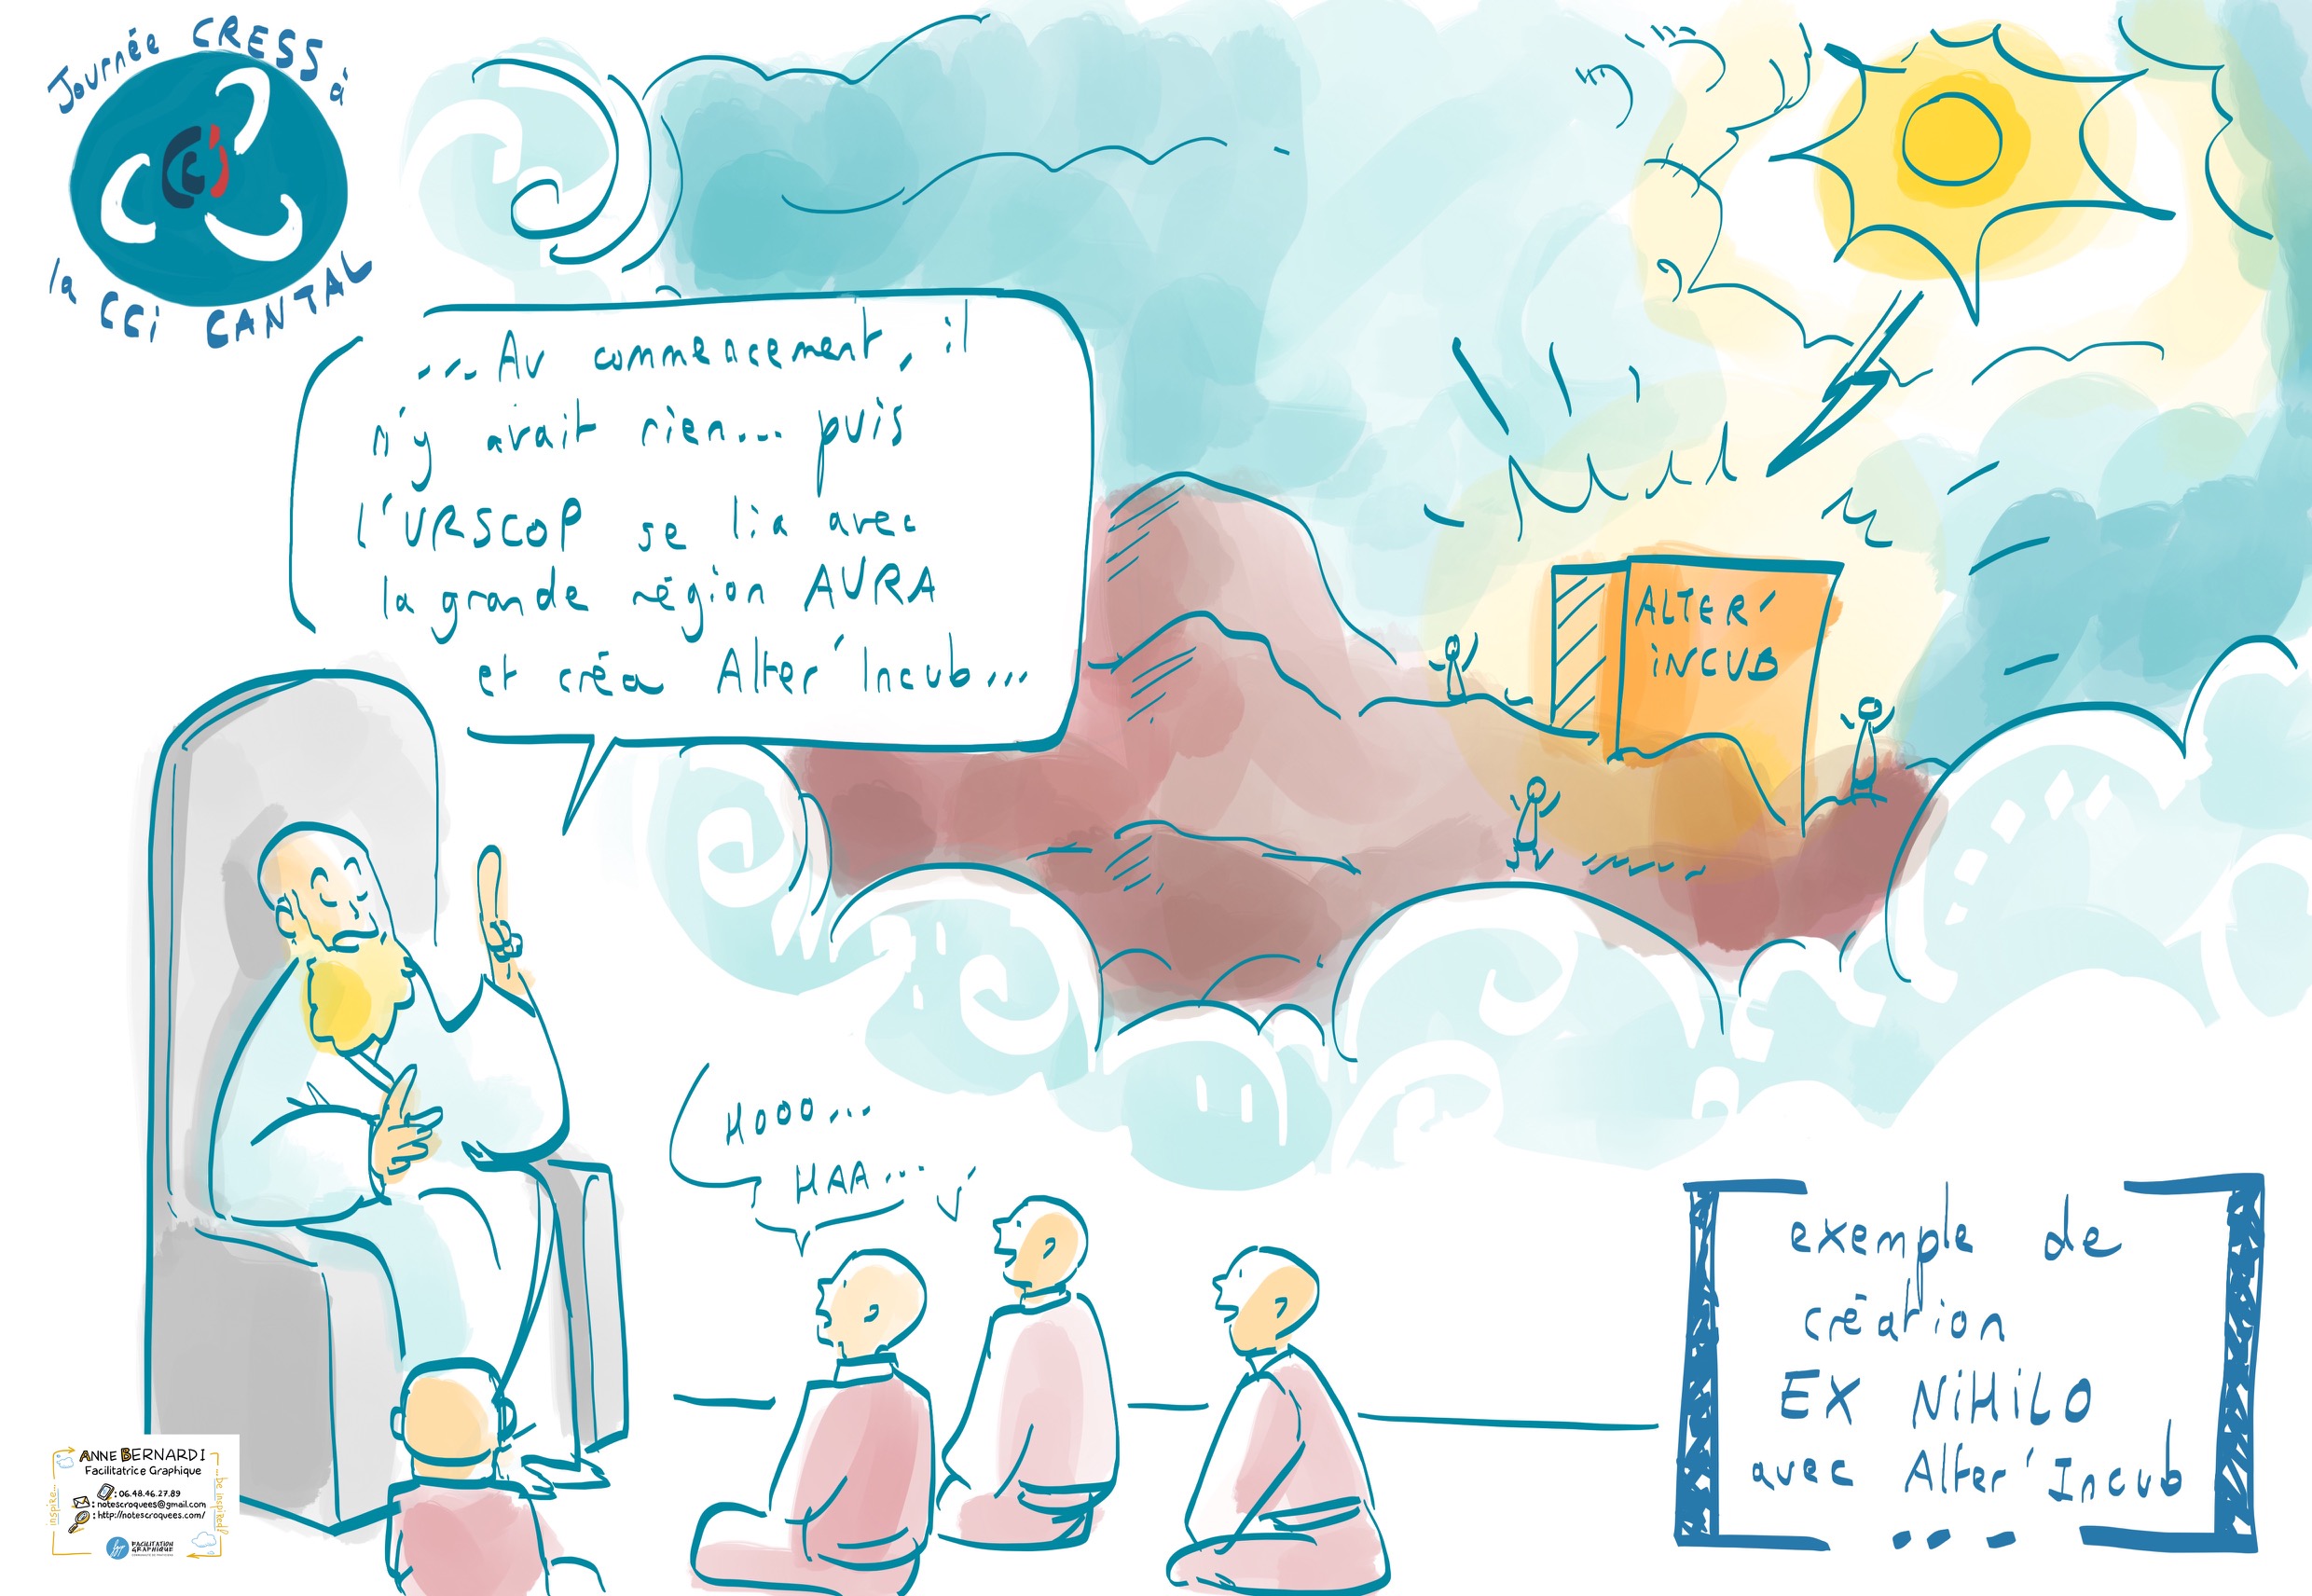 Journée CRESS à
la CCi CANTAL
CCi
...Au commencement, il
n'y avait rien... puis
l'URSCOP se lia avec
la grande région AURA
et créa Alter'Incub...
ALTER'
iNCUB
HOOO...
HAA...
exemple de
création
EX NiHiLO
avec Alter'Incub
...
ANNE BERNARDI
Facilitatrice Graphique
: 06.48.46.27.89
: notescroquees@gmail.com
: http://notescroquees.com/
inspire...
...be inspired!
FACILITATION
GRAPHIQUE